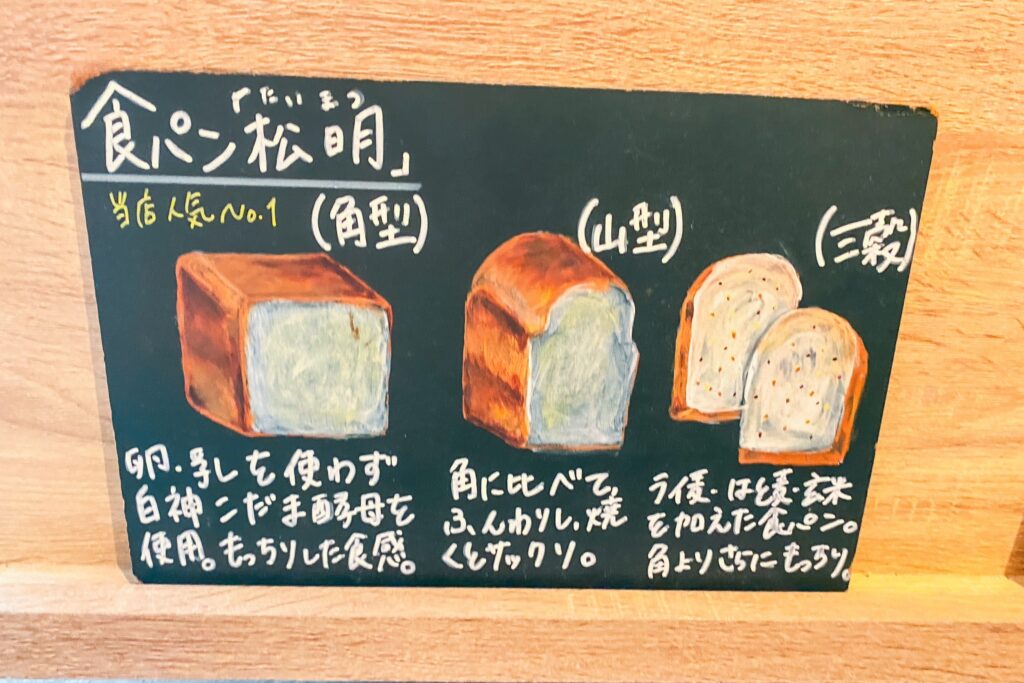 たいまつ
食パン「松明」
当店人気No.1
(角型)
卵・乳を使わず
白神こだま酵母を
使用。もっちりした食感。
(山型)
角に比べて、
ふんわりし、焼
くとサックリ。
(三穀)
ライ麦・はと麦・玄米
を加えた食パン。
角よりさらにもっちり。